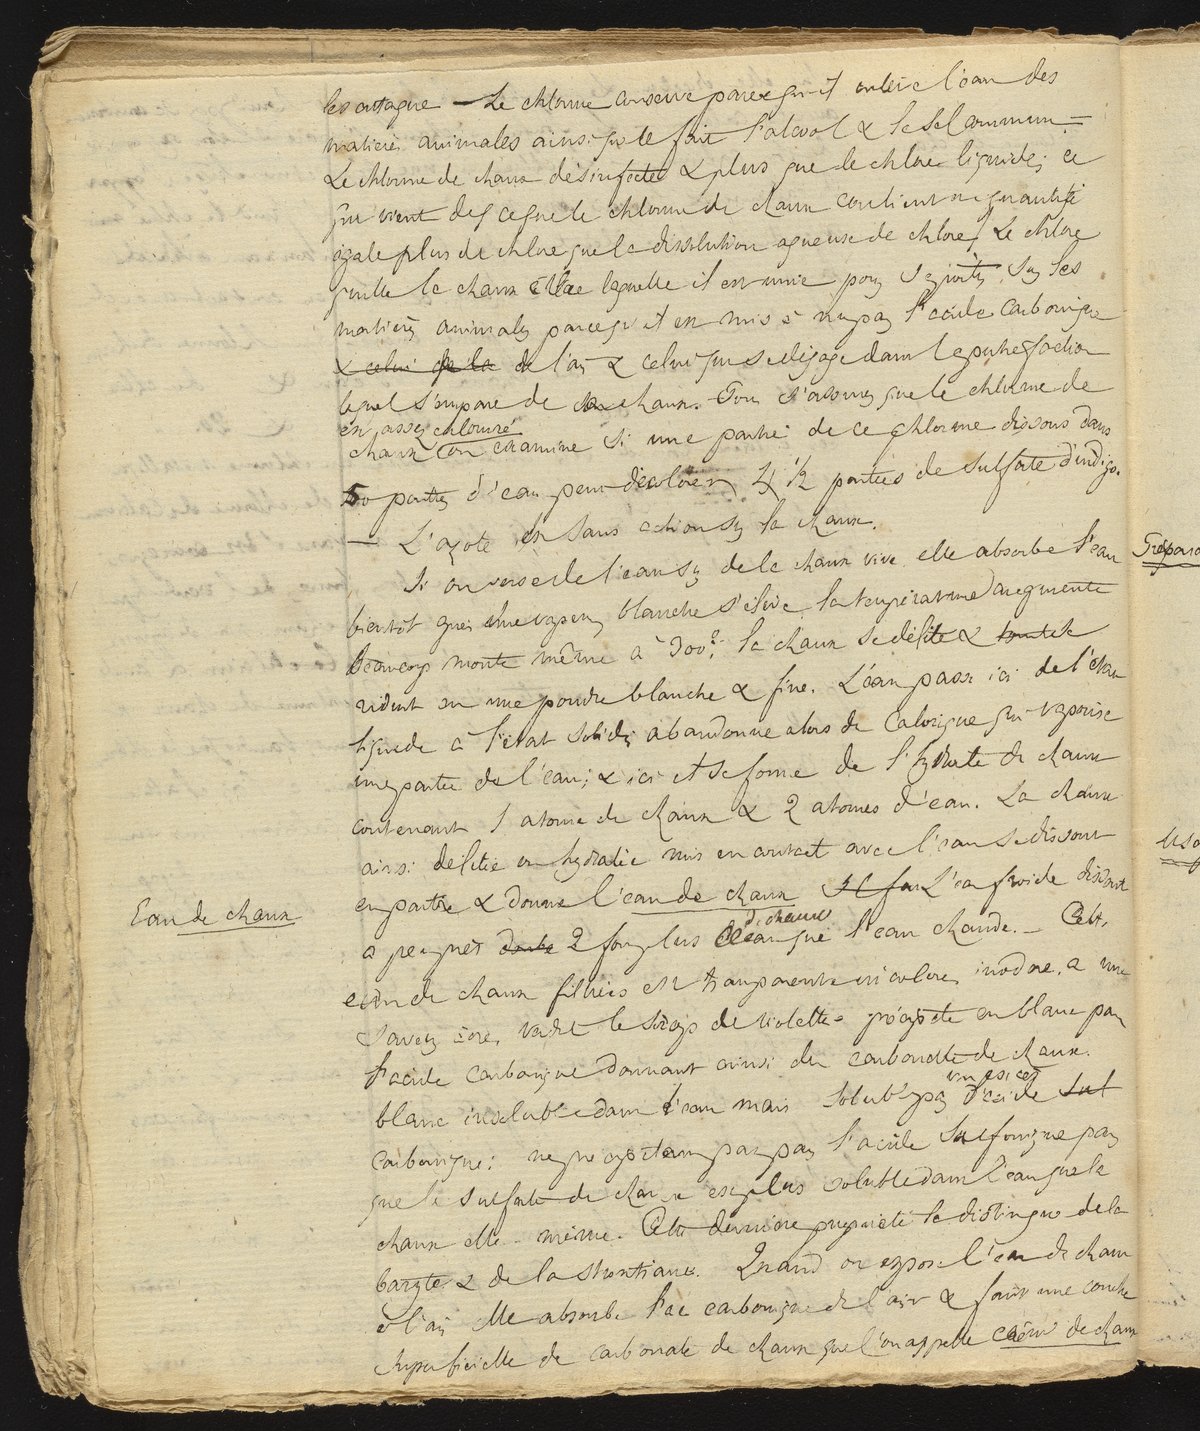 les attaque — Le chlorure conserve parce qu'il enlève l'eau des
matières animales ainsi que le fait l'alcool & le sel commun. —
Le chlorure de chaux désinfecte & plus que le chlore liquide; ce
qui vient de ce que le chlorure de chaux contient à quantité
égale plus de chlore que la dissolution aqueuse de chlore. Le chlore
quitte la chaux à laquelle il est unie pour se porter sur les
matières animales parce qu'il est mis à nu par l'acide carbonique
& celui de la de l'air & celui qui se dégage dans la putréfaction
lequel s'empare de la chaux. Pour s'assurer que le chlorure de
est assez chloruré
chaux on examine si une partie de ce chlorure dissous dans
50 parties d'eau peut décolorer 4 1/2 parties de sulfate d'indigo.
— L'azote est sans action sur la chaux.
Si on verse de l'eau sur de la chaux vive elle absorbe l'eau
bientôt après une vapeur blanche s'élève, la température augmente
beaucoup monte même à 300°. la chaux se délite &
réduit en une poudre blanche & fine. L'eau passe ici de l'état
liquide à l'état solide, abandonne alors de calorique qui vaporise
une partie de l'eau; & ici il se forme de l'hydrate de chaux
contenant 1 atome de chaux & 2 atomes d'eau. La chaux
ainsi délitée ou hydratée mis en contact avec l'eau se dissout
Eau de chaux
en partie & donne l'eau de chaux L'eau froide dissout
de chaux
a peu près 2 fois plus que l'eau chaude. — Cette
eau de chaux filtrée est transparente incolore, inodore, a une
saveur âcre, verdit le sirop de violette précipite en blanc par
l'acide carbonique donnant ainsi du carbonate de chaux.
un excès
blanc insoluble dans l'eau mais soluble par d'acide sul
carbonique: ne précipitant pas par l'acide sulfurique par
que le sulfate de chaux est plus soluble dans l'eau que la
chaux elle-même. Cette dernière propriété la distingue de la
baryte & de la strontiane. Quand on expose l'eau de chaux
à l'air elle absorbe l'ac carbonique de l'air & forme une couche
superficielle de carbonate de chaux que l'on appelle crême de chaux